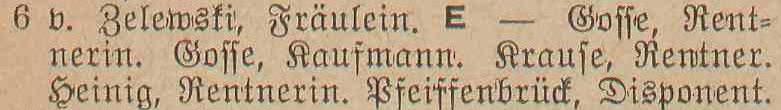 6 v. Zelewski, Fräulein. E — Gosse, Rent=
nerin. Gosse, Kaufmann. Krause, Rentner.
Heinig, Rentnerin. Pfeiffenbrück, Disponent.